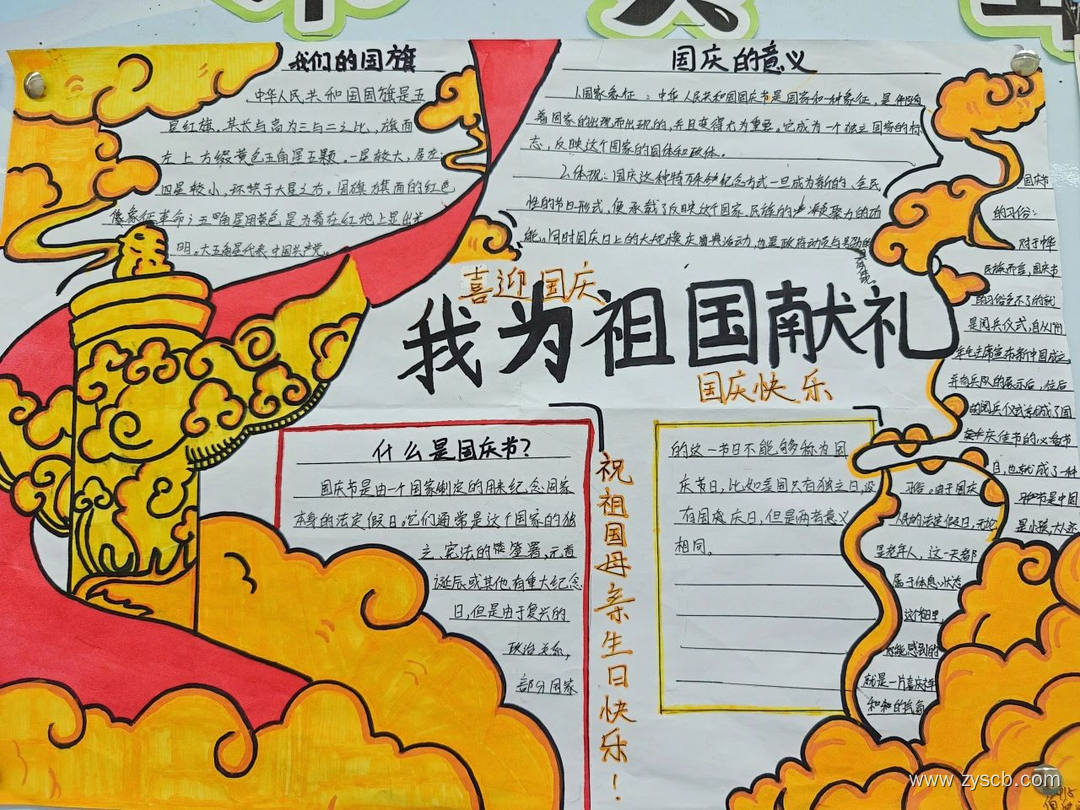 我们的国旗
中华人民共和国国旗是五
星红旗，其长与高为三与二之比，旗面
左上方缀黄色五角星五颗，一星较大，居左；
四星较小，环拱于大星之右。国旗为旗面的红色
像象征革命；五角星用黄色是为着在红地上显出光
明。大五角星代表中国共产党。
国庆的意义
1.国家象征：中华人民共和国国庆节是国家和一种象征，是伴随
着国家的出现而出现的，并且变得尤为重要。它成为一个独立国家的标
志，反映这个国家的国体和政体。
2.体现：国庆这种特殊纪念方式一旦成为新的、全民
性的节日形式，便承载了反映这个国家、民族的凝聚力的功
能。同时国庆日上的大规模庆典活动，也是政府动员与号召力的
具体体现。
喜迎国庆
我为祖国献礼
国庆快乐
什么是国庆节？
国庆节是由一个国家制定的用来纪念国家
本身的法定假日。它们通常是这个国家的独
立、宪法的签署、元首
诞辰或其他有重大纪念
日，但是由于复兴的
政治关系，
部分国家
祝祖国母亲生日快乐！
的这一节日不能够称为国
庆节日，比如美国只有独立日，没
有国庆日，但是两者意义
相同。
国庆节
的习俗：
对于中华
民族而言，国庆节
的习俗当不了的就
是阅兵仪式，自从1949
年毛主席宣布新中国成立
并向兵队的展示后，往后
的阅兵仪式就成了国
庆佳节的必备节
目，也就成了一种
习俗。由于国庆
节是中国
人民的法定假日，无论
是小孩、大人亦
是老年人，这一天都
属于休息状态
这个档里，
你能感到的
就是一片喜庆祥
和和的气氛
www.zyscb.com